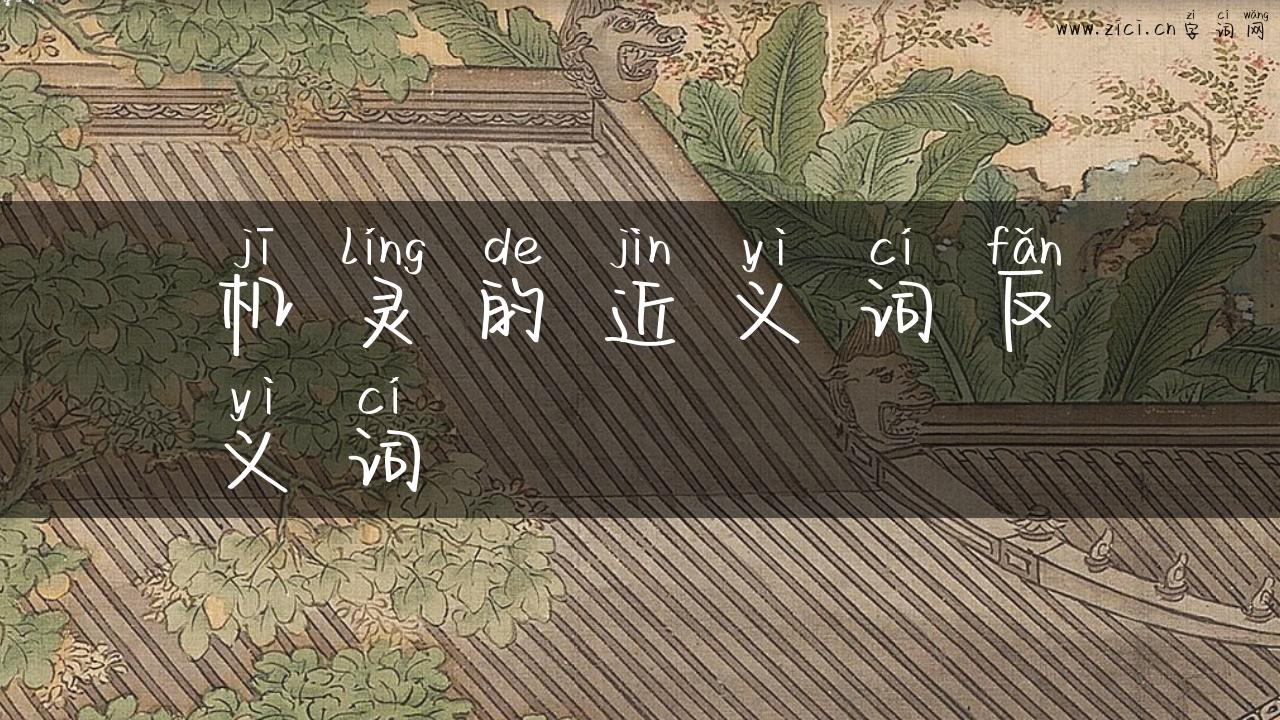 zì cí wǎng
www.zici.cn 字词网
jī líng de jìn yì cí fǎn
机灵的近义词反
yì cí
义词